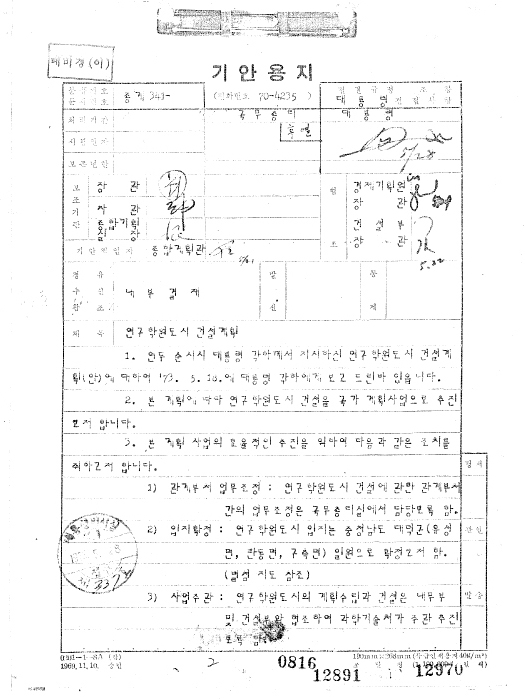 기안용지
종기 340-
(전화번호 70-4235)
대통령
국무총리
대통령
5/28
장관
차관
종합기획
실장
경제기획원
장관
건설부
장관
5.22
기안책임자 종합기획관
경유
수신
참조
내부결재
발신
통제
제목 연구학원도시 건설계획
1. 연두 순시시 대통령 각하께서 지시하신 연구학원도시 건설계
획(안)에 대하여 '73. 5. 18.에 대통령 각하에게 보고 드린바 있읍니다.
2. 본 계획에 따라 연구학원도시 건설을 국가 계획사업으로 추진
코저 합니다.
3. 본 계획 사업의 효율적인 추진을 위하여 다음과 같은 조치를
취하고저 합니다.
1) 관계부처 업무조정 : 연구학원도시 건설에 관한 관계부처
간의 업무조정은 국무총리실에서 담당토록 함.
2) 입지확정 : 연구학원도시 입지는 충청남도 대덕군(유성
면, 탄동면, 구즉면) 일원으로 확정코저 함.
(별첨 지도 참조)
3) 사업주관 : 연구학원도시의 계획수립과 건설은 내무부
및 건설부와 협조하여 과학기술처가 주관 추진
토록 함.
1969.11.10. 승인
2
0816
12891
12970